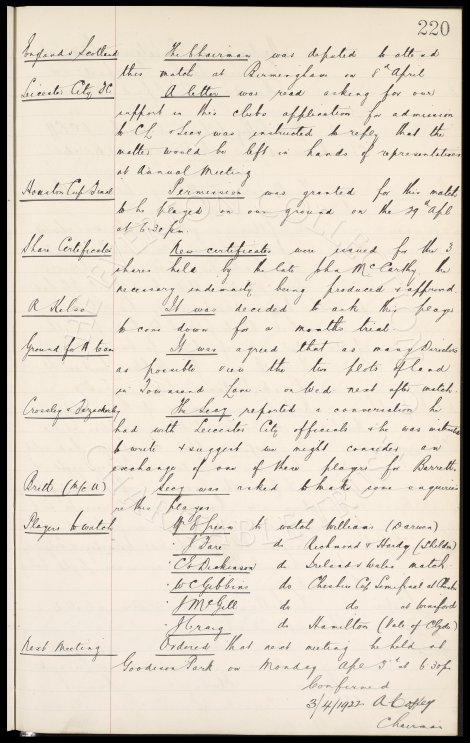 220
England v Scotland The Chairman was deputed to attend
this match at Birmingham on 8th April
Leicester City FC A letter was read asking for our
support in this clubs application for admission
to CL. Secy was instructed to reply that the
matter would be left in hands of representatives
at Annual Meeting
Houston Cup Final Permission was granted for this match
to be played on our ground on the 29th Apl
at 6.30 pm.
Share Certificates New certificates were issued for the 3
shares held by the late John McCarthy the
necessary indemnity being produced & approved
R Kelso It was decided to ask this player
to come down for a months trial.
Ground for A team It was agreed that as many Directors
as possible view the two plots of land
in Townsend Lane on Wed next after match.
Crossley & The Secy reported a conversation he
had with Leicester City officials & he was instructed
to write & suggest we might consider an
exchange of one of these players for
Brett (M/c U) Secy was asked to make some enquiries
re this player
Players to watch Green to watch Williams (Darwen)
J Tare do Richmond & Hardy (Shildon)
Dickinson do Ireland v Wales match
W C Gibbins do Cheshire Cup Semifinal at Chester
J McGill do do at
J Craig do Hamilton (Vale of Clyde)
Next Meeting Ordered that next meeting be held at
Goodison Park on Monday Apl 3rd at 6.30 pm
Confirmed
3/4/1922 A Coffey
Chairman